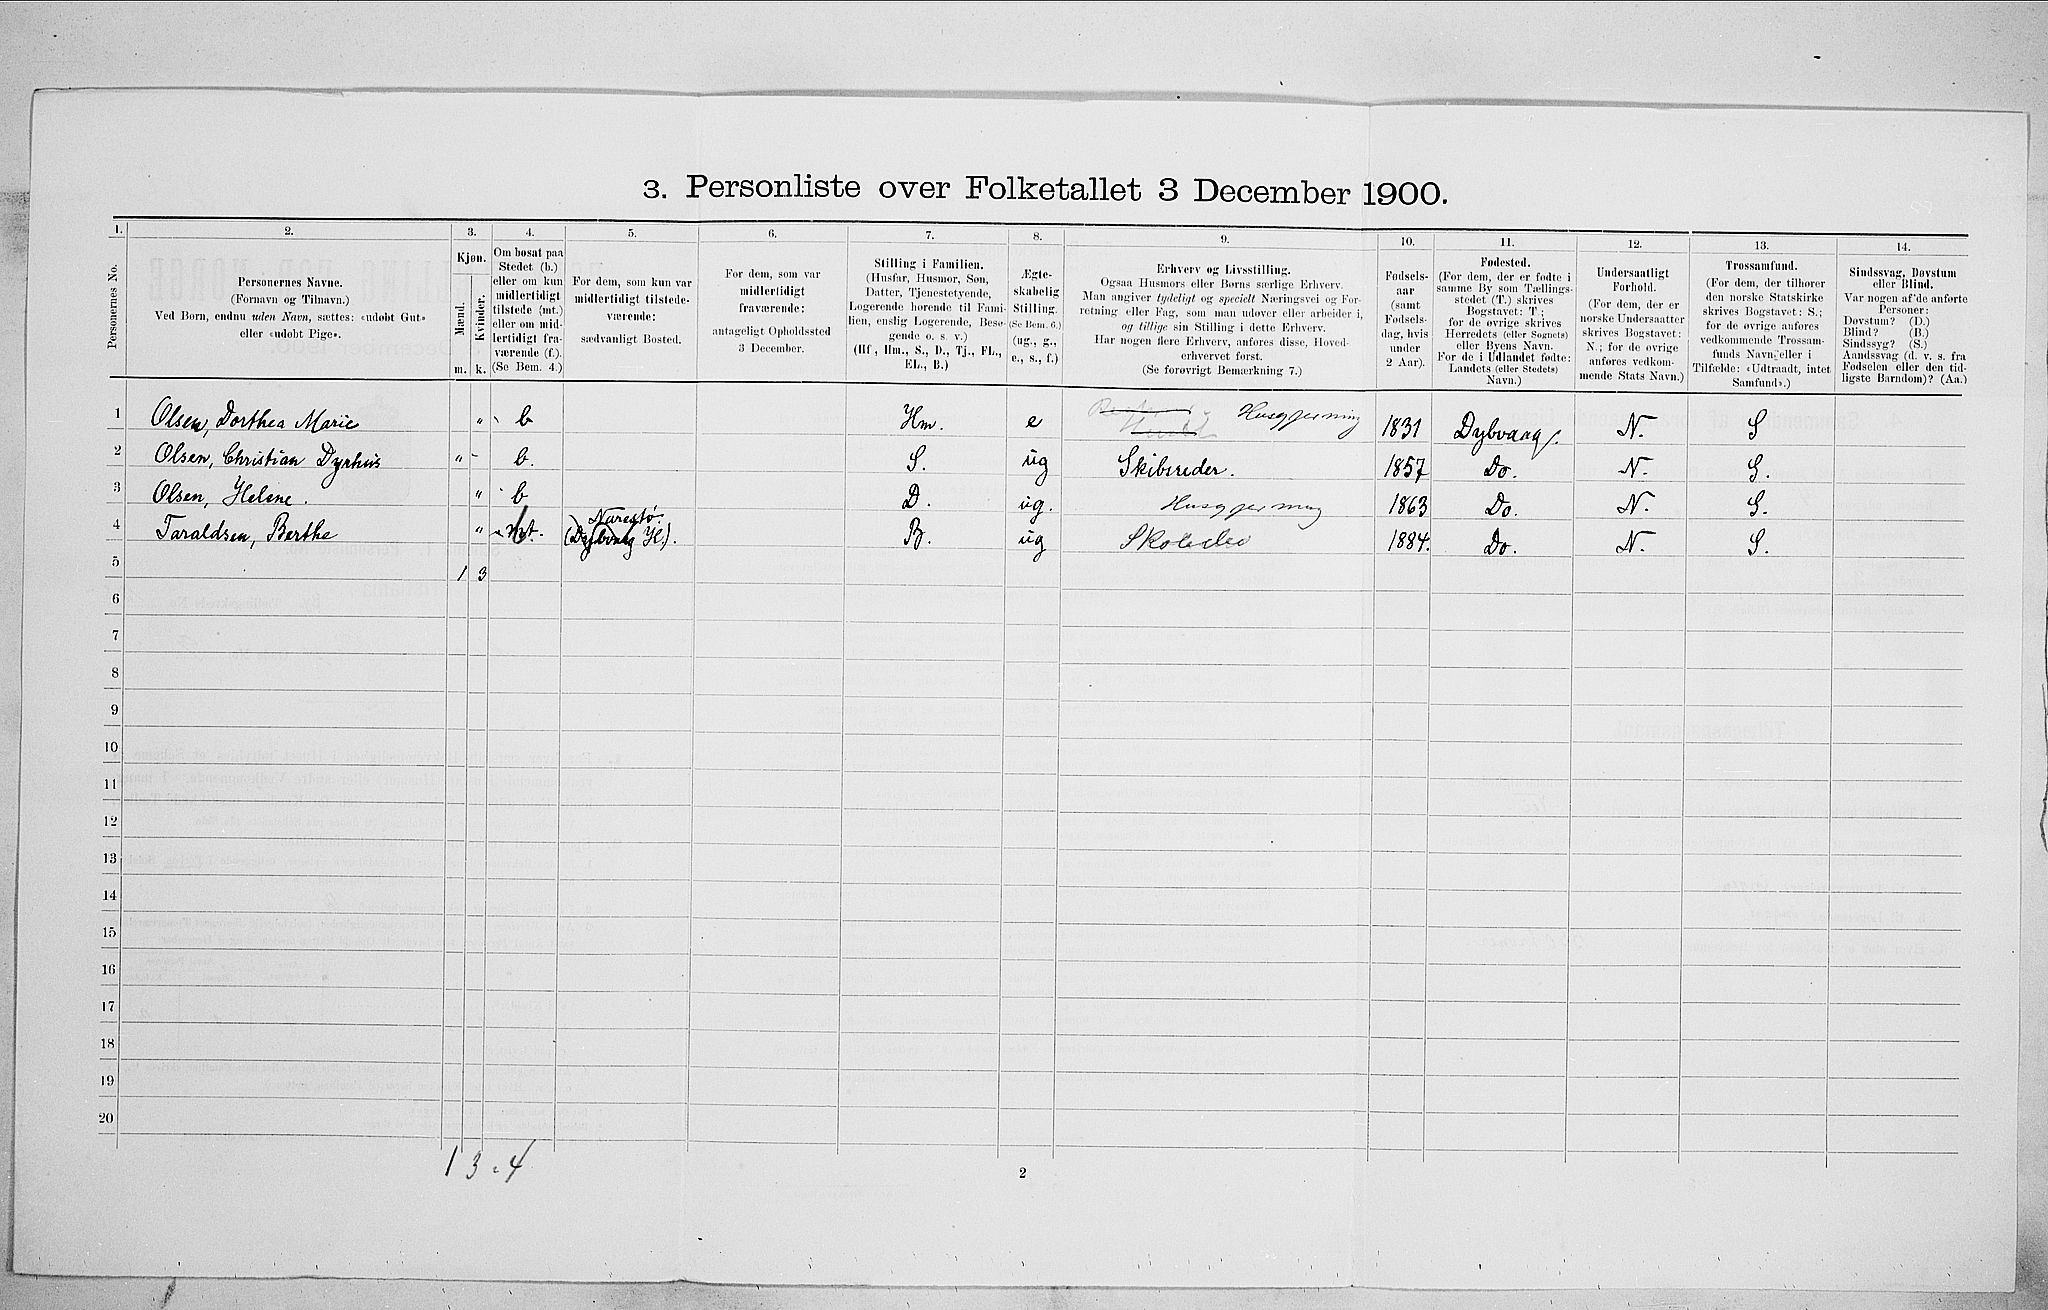 3. Personliste over Folketallet 3 December 1900.
1. 2. 3. 4. 5. 6. 7. 8. 9. 10. 11. 12. 13. 14.
Personernes No.
Personernes Navne.
(Fornavn og Tilnavn.)
Ved Børn, endnu uden Navn, sættes: «udøbt Gut»
eller «udøbt Pige».
Kjøn.
Mænd. Kvinder.
m. k.
Om bosat paa
Stedet (b.)
eller om kun
midlertidigt
tilstede (mt.)
eller om mid-
lertidigt fra-
værende (f.).
(Se Bem. 4.)
For dem, som kun var
midlertidigt tilstede-
værende:
sædvanligt Bosted.
For dem, som var
midlertidigt
fraværende:
antageligt Opholdssted
3 December.
Stilling i Familien.
(Husfar, Husmor, Søn,
Datter, Tjenestetyende,
Logerende hørende til Fami-
lien, enslig Logerende, Besø-
gende o. s. v.)
(Hf., Hm., S., D., Tj., FL.,
EL., B.)
Ægte-
skabelig
Stilling.
(Se Bem. 6.)
(ug., g.,
e., s., f.)
Erhverv og Livsstilling.
Ogsaa Husmors eller Børns særlige Erhverv.
Man angiver tydeligt og specielt Næringsvei og For-
retning eller Fag, som man udøver eller arbeider i,
og tillige sin Stilling i dette Erhverv.
Har nogen flere Erhverv, anføres disse, Hoved-
erhvervet først.
(Se forøvrigt Bemærkning 7.)
Fødsels-
aar
(samt
Fødsels-
dag, hvis
under
2 Aar).
Fødested.
(For dem, der er fødte i
samme By som Tællings-
stedet (T.) skrives
Bogstavet: T.;
for de øvrige skrives
Herredets (eller Sognets)
eller Byens Navn.
For de i Udlandet fødte:
Landets (eller Stedets)
Navn.)
Undersaatligt
Forhold.
(For dem, der er
norske Undersaatter
skrives Bogstavet:
N.; for de øvrige
anføres vedkom-
mende Stats Navn.)
Trossamfund.
(For dem, der tilhører
den norske Statskirke
skrives Bogstavet: S.;
for de øvrige anføres
vedkommende Trossam-
funds Navn, eller i
Tilfælde: «Udtraadt, intet
Samfund».)
Sindssvag, Døvstum
eller Blind.
Var nogen af de anførte
Personer:
Døvstum? (D.)
Blind? (B.)
Sindssyg? (S.)
Aandssvag (d. v. s. fra
Fødselen eller den tid-
ligste Barndom)? (Aa.)
1 Olsen, Dorthea Marie " b Hm. e Husgjerning 1831 Dybvaag. N. S
2 Olsen, Christian Dyrhus " b. S. ug Skibsreder. 1857 Do. N. S.
3 Olsen, Helene. " b D. ug. Husgjerning 1863 Do. N. S.
4 Taraldsen, Berthe " mt. Narestø. (Dybvaag H.). B. ug 1884. Do. N. S.
5 1 3
6
7
8
9
10
11
12
13
14
15
16
17
18
19
20
1 3 = 4
2